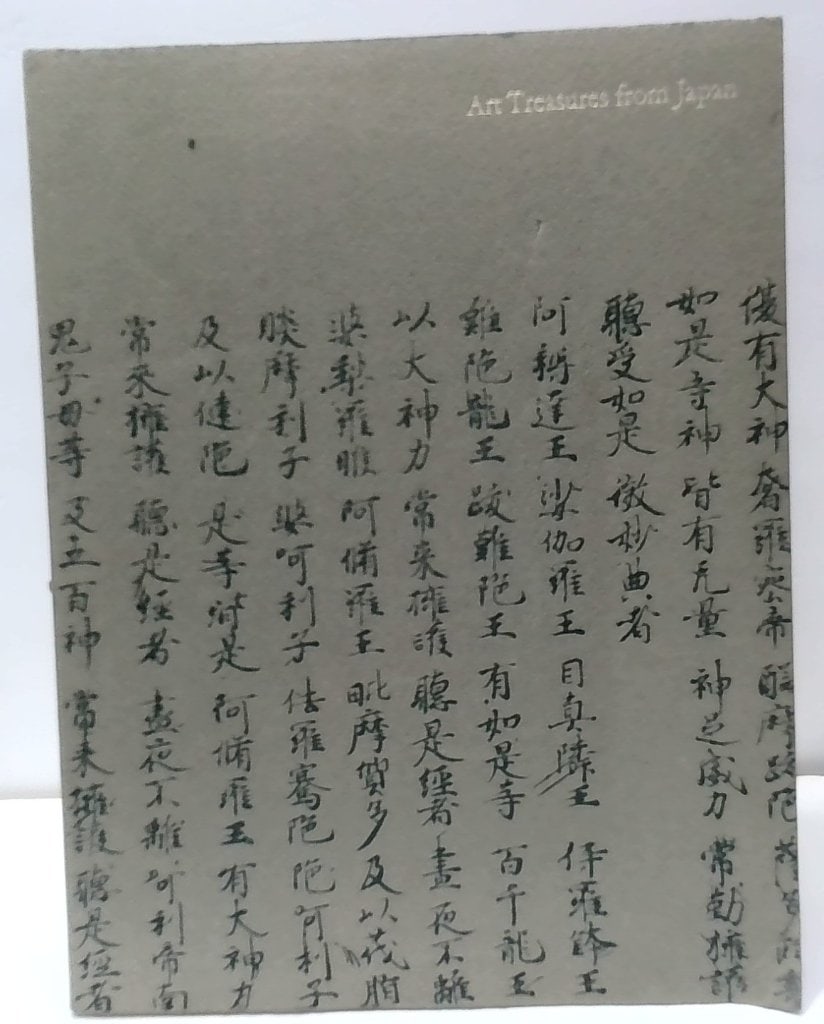 Art Treasures from Japan
復有大神 奢羅蜜帝 醯摩跋陀
如是等神 皆有无量 神足威力 常勤擁護
聽受如是 微妙典者
阿耨達王 娑伽羅王 目真隣王 伊羅鉢王
難陀龍王 跋難陀王 有如是等 百千龍王
以大神力 常来擁護 聽是經者 晝夜不離
婆梨羅睺 阿脩羅王 毗摩質多 及以茂脂
睒摩利子 婆呵利子 佉羅騫陀 陀阿利子
及以揵陀 是等皆是 阿脩羅王 有大神力
常来擁護 聽是經者 晝夜不離 呵利帝南
鬼子母等 及五百神 常来擁護 聽是經者